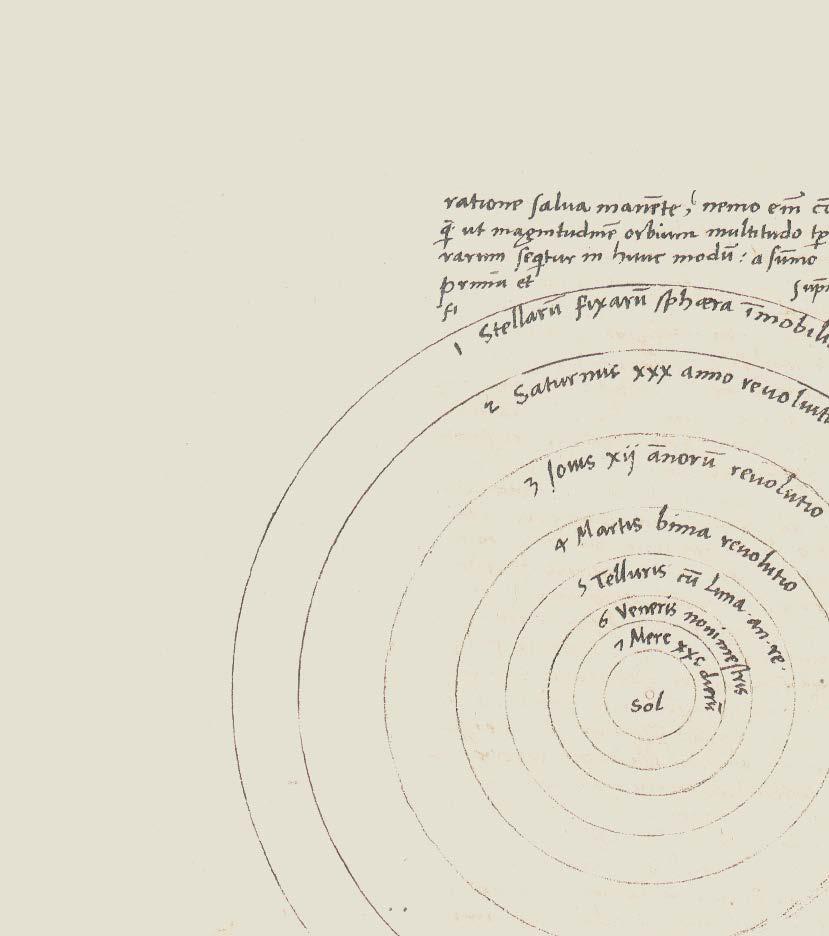 ratione salva manēte, nemo em̄ cō
q̄ ut magnitudinē orbium multitudo tp̄
rarum seqtur in hunc modū: a sūmo
primā et Supr
fi
1 Stellarū fixarū sphæra īmobilis
2 Saturnus xxx anno revoluit
3 Jovis xij ānorū revolutio
4 Martis bima revolutio
5 Telluris cū Luna an. re.
6 Veneris nonimestris
7 Merc xxc dierū
Sol